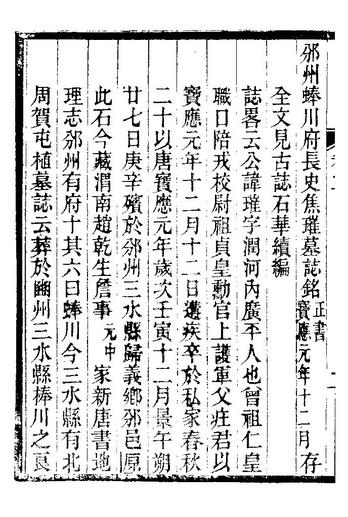 邠州蜯川府長史焦璀墓誌銘 正書 寶應元年十二月 存
全文見古誌石華續編
誌畧云公諱璀字潤河內廣平人也曾祖仁皇
職口陪戎校尉祖貞皇勳官上護軍父㽵君以
寶應元年十二月十二日遘疾卒於私家春秋
二十以唐寶應元年歲次壬寅十二月景午朔
廿七日庚辛殯於邠州三水縣歸義鄉邠邑原
此石今藏渭南趙乾生詹事元中家新唐書地
理志邠州有府十其六曰蜯川今三水縣有北
周賀屯植墓誌云葬於豳州三水縣棒川之良